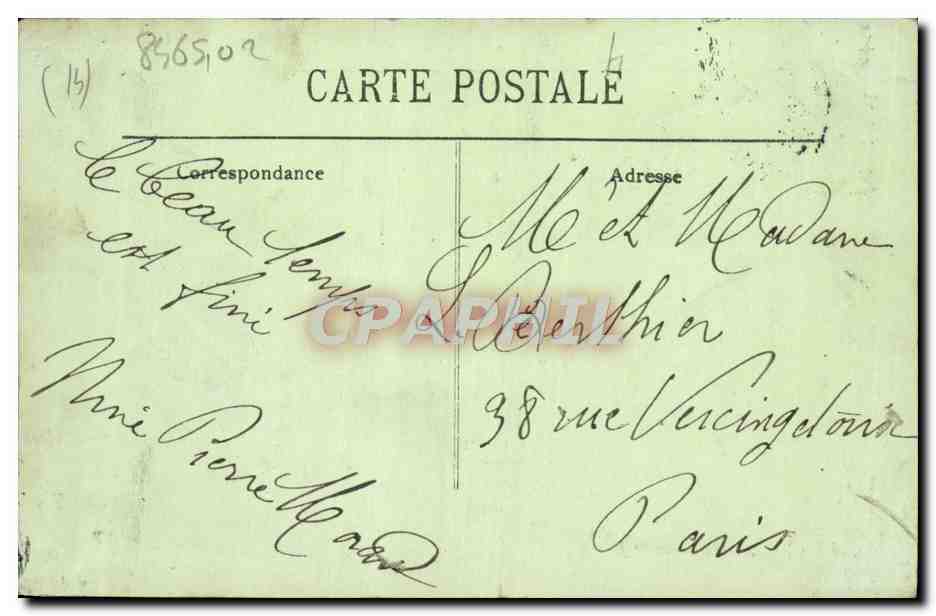 8465,02
(14)
CARTE POSTALE
Correspondance
le beau temps
est fini
Pierre
Adresse
Mr et Madame
L. Berthier
38 rue Vercingetorix
Paris
CPAPHIL